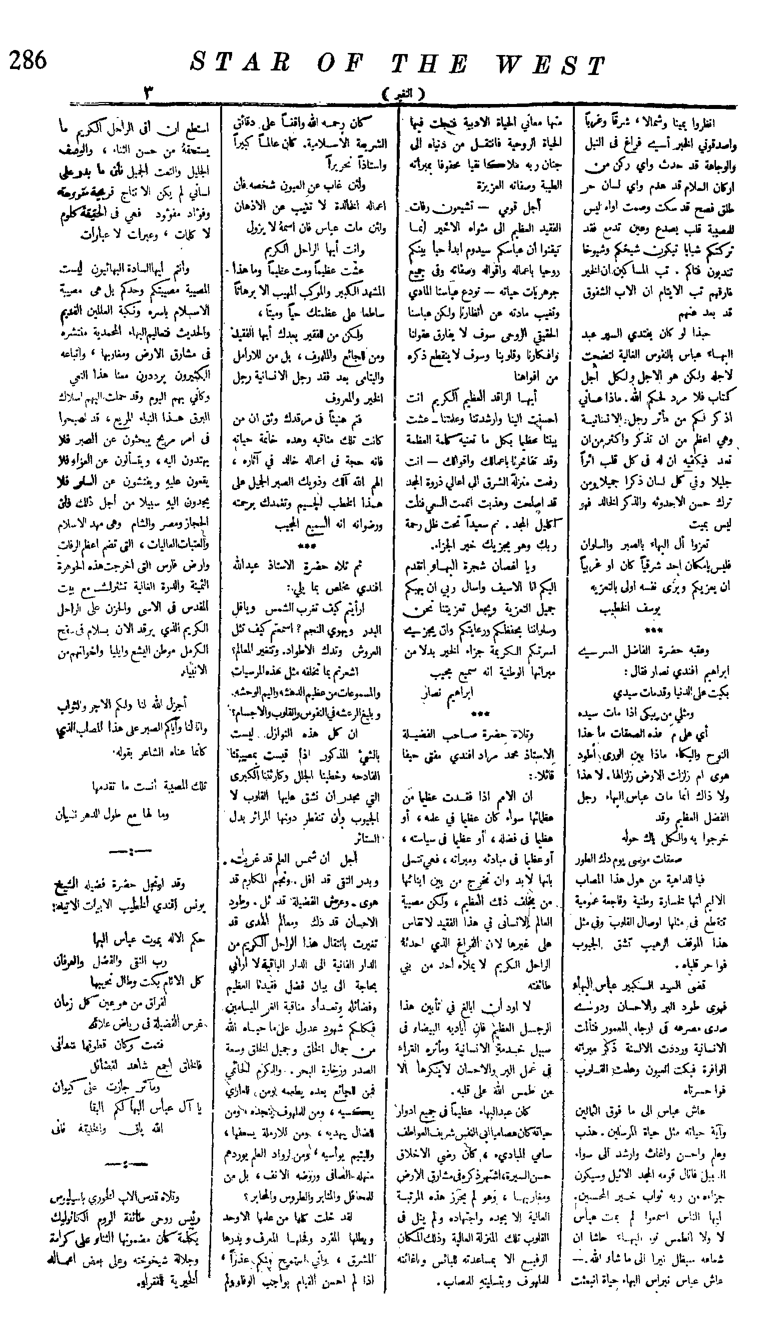 286
STAR OF THE WEST
( النفير )
٣
انظروا يمينا وشمالا ، شرقاً وغرباً
واصدقوني الخبر أسيء فراغ في النبل
والوجاهة قد حدث واي ركن من
اركان السلام قد هدم واي لسان حر
طلق فصح قد سكت وصمت اواه ليس
للمصيبة قلب يصدع وعين تدمع فقد
تركتكم شبابا تبكون شبخكم وشيوخا
تندبون فتاكم . تب المساكين ان الخير
فارقهم تب الايتام ان الاب الشفوق
قد بعد عنهم
حبذا لو كان يفتدي السير عبد
البهاء عباس بالنفوس الغالية لتضحت
لاجله ولكن هو الاجل ولكل أجل
كتاب فلا مرد لحكم الله . ماذا عساني
اذكر لكم من مآثر رجل الانسانية
وهي اعظم من ان تذكر واكثر من ان
تعد فيكفيه ان له في كل قلب اثراً
جليلا وفي كل لسان ذكرا جميلا ومن
ترك حسن الاحدوثه والذكر الخالد فهو
ليس بميت
تعزوا أل البهاء بالصبر والسلوان
فليس بامكان احد شرقياً كان او غربياً
ان يعزيكم ويرى نفسه اولى بالتعزيه
يوسف الخطيب
***
وعقبه حضرة الفاضل السري
ابراهيم افندي نصار فقال :
بكيت على الدنيا وقدمات سيدي
ومثلي من يبكي اذا مات سيده
أي على م هذه الصعقات ما هذا
النوح والبكاء ماذا بين الورى أطود
هوى ام زلزلت الارض زلزالها . لا هذا
ولا ذاك انما مات عباس البهاء رجل
الفضل العظيم وقد
خرجوا به والكل باك حوله
صعقات موسى يوم دك الطور
فيا للداهية من هول هذا المصاب
الاليم انها لخسارة وطنية وفاجعة عمومية
تتقطع في مثلها اوصال القلوب وفي مثل
هذا الموقف الرهيب تشق الجيوب
فوا حر قلباه .
قضى السيد الكبير عباس البهاء
فهوى طود البر والاحسان ودوى
صدى مصرعه في ارجاء المعمور فتألمت
الانسانية ورددت الالسنة ذكر مبراته
الوافرة فبكت العيون وهلعت القلوب
فوا حسرتاه
عاش عباس الى ما فوق الثمانين
وآية حياته مثل حياة المرسلين . هذب
وعلم واحسن واغاث وارشد الى سواء
السبيل فانال قومه المجد الاثيل وسيكون
جزاءه من ربه ثواب خير المحسنين .
ايها الناس اسمعوا لم يمت عباس
لا ولا انطمس نور البهاء حاشا ان
شعاعه سيظل نيرا الى ما شاء الله .—
عاش عباس نبراس البهاء حياة انبعثت
منها معاني الحياة الادبية فتجلت فيها
الحياة الروحية فانتقل من دنياه الى
جنان ربه ملاكا نقيا محفوفا بمبراته
الطيبة وصفاته العزيزة
أجل قومي – تشيعون رفات
الفقيد العظيم الى مثواه الاخير انما
تيقنوا ان عباسكم سيدوم ابدا حيا بينكم
روحيا باعماله واقواله وصفاته وفي جميع
جوهريات حياته – نودع عباسنا المادي
وتغيب مادته عن انظارنا ولكن عباسنا
الحقيقي الروحي سوف لا يفارق عقولنا
وافكارنا وقلوبنا وسوف لا ينقطع ذكره
من افواهنا
أيها الراقد العظيم الكريم انت
احسنت الينا وارشدتنا وعلمتنا – عشت
بيننا عظيما بكل ما تعنيه كلمة العظمة
وقد تفاخرنا باعمالك واقوالك – انت
رفعت منزلة الشرق الى اعالي ذروة المجد
قد اصلحت وهذبت اتممت السعي فنلت
اكليل المجد . نم سعيداً تحت ظل رحمة
ربك وهو يجزيك خير الجزاء .
ويا اغصان شجرة البهاء اتقدم
اليكم انا الاسيف واسال ربي ان يهبكم
جميل التعزية ويجعل تعزيتنا نحن
وسلواننا بحفظكم ورعايتكم وان يجزي
اسرتكم الكريمة جزاء الخير بدلا من
مبراتها الوطنية انه سميع مجيب
ابراهيم نصار
***
وتلاه حضرة صاحب الفضيلة
الاستاذ محمد مراد افندي مفتي حيفا
قائلا :
ان الامم اذا فقدت عظيما من
عظمائها سواء كان عظيما في علمه ، أو
عظيما في فضله ، أو عظيما في سياسته ،
أو عظيما في مبادئه ومبراته ، فهي تتسلى
بانها لابد وان تخرج من بين ابنائها
من يخلف ذلك العظيم ، ولكن مصيبة
العالم الانساني في هذا الفقيد لا تقاس
على غيرها لان الفراغ الذي احدثه
الراحل الكريم لا يملأه احد من بني
طائفته
لا اود أن ابالغ في تأبين هذا
الرجل العظيم فان أياديه البيضاء في
سبيل خدمة الانسانية ومآثره الغراء
في عمل البر والاحسان لا ينكرها الا
من طمس الله على قلبه .
كان عبد البهاء عظيماً في جميع ادوار
حياته كان عصاميا ابي النفس شريف العواطف
سامي المبادىء ، كان رضي الاخلاق
حسن السيرة ، اشتهر ذكره في مشارق الارض
ومغاربها ، وهو لم يحرز هذه المرتبة
العالية الا بجده واجتهاده ولم ينل في
القلوب تلك المنزلة العالية وذلك المكان
الرفيع الا بمساعدته للبائس واغاثته
للملهوف وبتسليته المصاب .
كان رحمه الله واقفاً على دقائق
الشريعة الاسلامية . كان عالماً كبيراً
واستاذاً نحريراً
ولئن غاب عن العيون شخصه فان
اعماله الخالدة لا تغيب عن الاذهان
ولئن مات عباس فان اسمه لا يزول
وانت أيها الراحل الكريم
عشت عظيماً ومت عظيماً وما هذا
المشهد الكبير والموكب المهيب الا برهاناً
ساطعا على عظمتك حياً وميتاً ،
ولكن من للفقير بعدك أيها الفقيد
ومن للجائع والملهوف ، بل من للارامل
واليتامى بعد فقد رجل الانسانية رجل
الخير والمعروف
فنم هنيئاً في مرقدك وثق ان من
كانت تلك مناقبه وهذه خاتمة حياته
فانه حجة في اعماله خالد في آثاره ،
الهم الله آلك وذويك الصبر الجميل على
هذا الخطب الجسيم وتغمدك برحمته
ورضوانه انه السميع المجيب
***
ثم تلاه حضرة الاستاذ عبدالله
افندي مخلص بما يلي :
ارأيتم كيف تغرب الشمس ويافل
البدر ويهوي النجم ؟ اسمعتم كيف تثل
العروش وتدك الاطواد . وتتغير المعالم ؟
اشعرتم بما تخلفه مثل هذه المرئيات
والمسموعات من عظيم الدهشه واليم الوحشه .
وبليغ الرعشه في النفوس والقلوب والاجسام ؟
ان كل هذه النوازل ليست
بالشيء المذكور اذا قيست بمصيبتنا
الفادحه وخطبنا الجلل وكارثتنا الكبرى
التي يجدر ان تشق عليها القلوب لا
الجيوب وأن تنفطر دونها المرائر بدل
الستائر
أجل أن شمس العلم قد غربت .
وبدر التقى قد افل . ونجم المكارم قد
هوى . وعرش الفضيلة قد ثل . وطود
الاحسان قد دك ومعالم الهدى قد
تغيرت بانتقال هذا الراحل الكريم من
الدار الفانية الى الدار الباقية لا أراني
بحاجة الى بيان فضل فقيدنا العظيم
وفضائله وتعداد مناقبه الغر الميامين
فكلكم شهود عدول على ما حباه الله
من جمال الخلق وجميل الخلق وسعة
الصدر وزخارة البحر . والكرم الحاتمي
فمن للجائع بعده يطعمه ومن للعاري
يكسيه ، ومن للملهوف ينجده ومن
للضال يهديه ، ومن للارملة يسعفها ،
ولليتيم يؤاسيه ، ومن لرواد العلم يوردهم
منهله الصافي وروضه الانف ، بل من
للمحافل والمنابر والطروس والمحابر ؟
لقد خلت كلها من علمها الاوحد
وبطلها المفرد وفحلها المعرف وبدرها
المشرق ، واني استميح منكم عذراً ،
اذا لم احسن القيام بواجب الوفاء ولم
استطع ان افي الراحل الكريم ما
يستحقه من حسن الثناء ، والوصف
الجليل والنعت الجميل فان ما بدر على
لساني لم يكن الا نتاج قريحة مقروحة
وفؤاد مفؤود فهي في الحقيقة كلوم
لا كلمات ، وعبرات لا عبارات
وانتم ايها السادة البهائيون ليست
المصيبة مصيبتكم وحدكم بل هي مصيبة
الاسلام باسره ونكبة العالمين القديم
والحديث فتعاليم البهاء المحمدية منتشره
في مشارق الارض ومغاربها ، واتباعه
الكثيرون يرددون معنا هذا النعي
وكأني بهم اليوم وقد حملت اليهم اسلاك
البرق هذا النباء المريع ، قد اصبحوا
في امر مريج يبحثون عن الصبر فلا
يهتدون اليه ، ويتسألون عن العزاء فلا
يقعون عليه ويفتشون عن السلو فلا
يجدون اليه سبيلا من أجل ذلك فان
الحجاز ومصر والشام وهي مهد الاسلام
والعتبات العاليات ، التي تضم اعظم الرفات
وارض فارس التي اخرجت هذه الجوهرة
الثمينة والدرة الغالية تشترك مع بيت
المقدس في الاسى والحزن على الراحل
الكريم الذي يرقد الان بسلام في سفح
الكرمل موطن اليشع وايليا واخوانهم من
الانبياء
أجزل الله لنا ولكم الاجر والثواب
وانالنا واياكم الصبر على هذا المصاب الذي
كأنما عناه الشاعر بقوله
تلك المصيبة أنست ما تقدمها
وما لها مع طول الدهر نسيان
—:—
وقد ارتجل حضرة فضيله الشيخ
يونس افندي الخطيب الابيات الاتية :
حكم الاله بموت عباس البها
رب التقى والفضل والعرفان
كل الانام بكت وطال نحيبها
لفراق من هو عين كل زمان
غرس الفضيلة في رياض علائه
فنمت وكان قطوفها متداني
فالخلق اجمع شاهد لفضائل
ومآثر جازت على كيوان
يا آل عباس البها لكم البقا
الله يبقى والخليقة فاني
—:—
وتلاه قدس الاب الخوري باسيليوس
رئيس روحي طائفة الروم الكاثوليك
بكلمة كان مضمونها الثناء على كرامة
وجلالة شيخوخته وعلى بعض اعماله
الخيرية للفقراء .